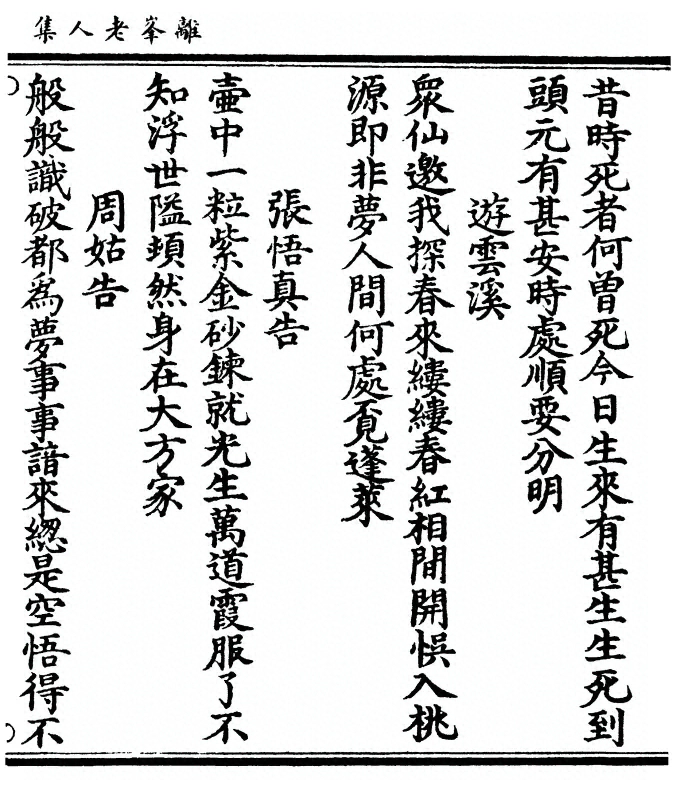 離峯老人集
昔時死者何曾死今日生來有甚生生死到
頭元有甚安時處順要分明
遊雲溪
衆仙邀我探春來縷縷春紅相間開悞入桃
源即非夢人間何處覔蓬萊
張悟真告
壷中一粒紫金砂鍊就光生萬道霞服了不
知浮世隘頓然身在大方家
周姑告
般般識破都爲夢事事諳來緫是空悟得不